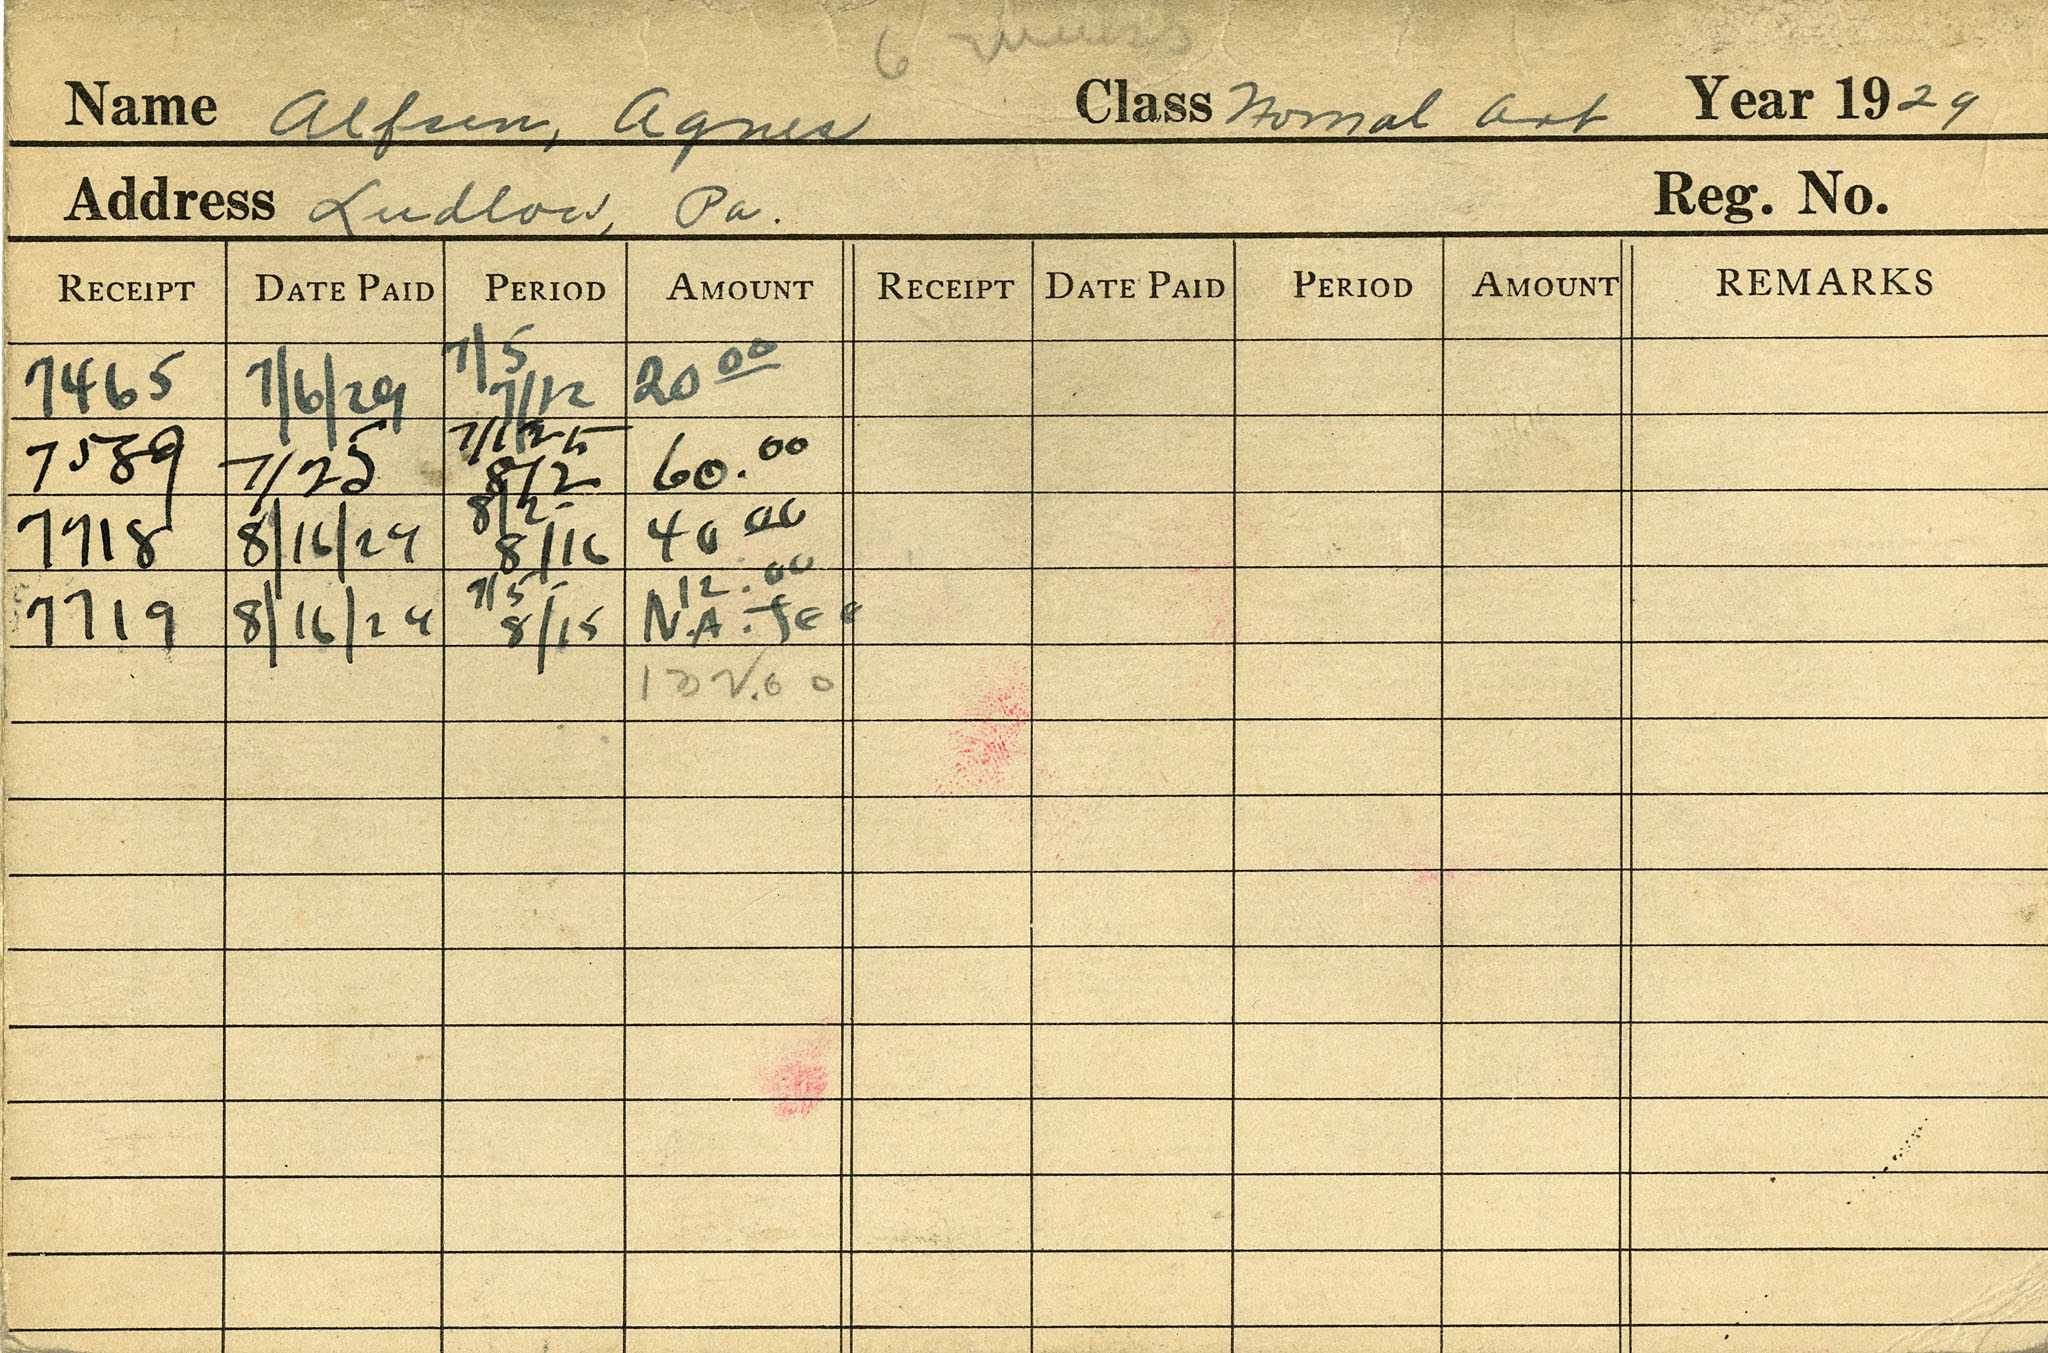 6 weeks
Name Alfsen, Agnes Class Normal Art Year 1929
Address Ludlow, Pa. Reg. No.
RECEIPT DATE PAID PERIOD AMOUNT RECEIPT DATE PAID PERIOD AMOUNT REMARKS
7465 7/6/29 7/5 7/12 20 00
7589 7/25 8/2 60.00
7718 8/16/29 8/2- 8/16 40 00
7719 8/16/29 7/5- 8/15 12.00 N.A. fee